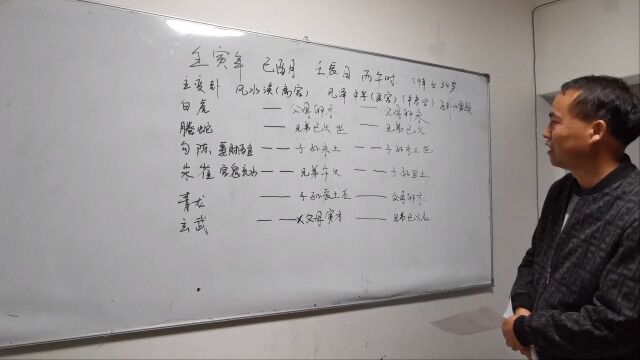 壬寅年 己酉月 壬辰日 丙午时
主变卦 风水涣(离宫) 风泽中孚(艮宫)
白虎 — 父母卯木 — 父母卯木
腾蛇 — 兄弟巳火 世 — 兄弟巳火
勾陈 妻财酉金 – – 子孙未土 – – 子孙未土 世
朱雀 官鬼亥水 – – 兄弟午火 – – 子孙丑土
青龙 — 子孙辰土 应 — 父母卯木
玄武 – – X 父母寅木 — 兄弟巳火 应